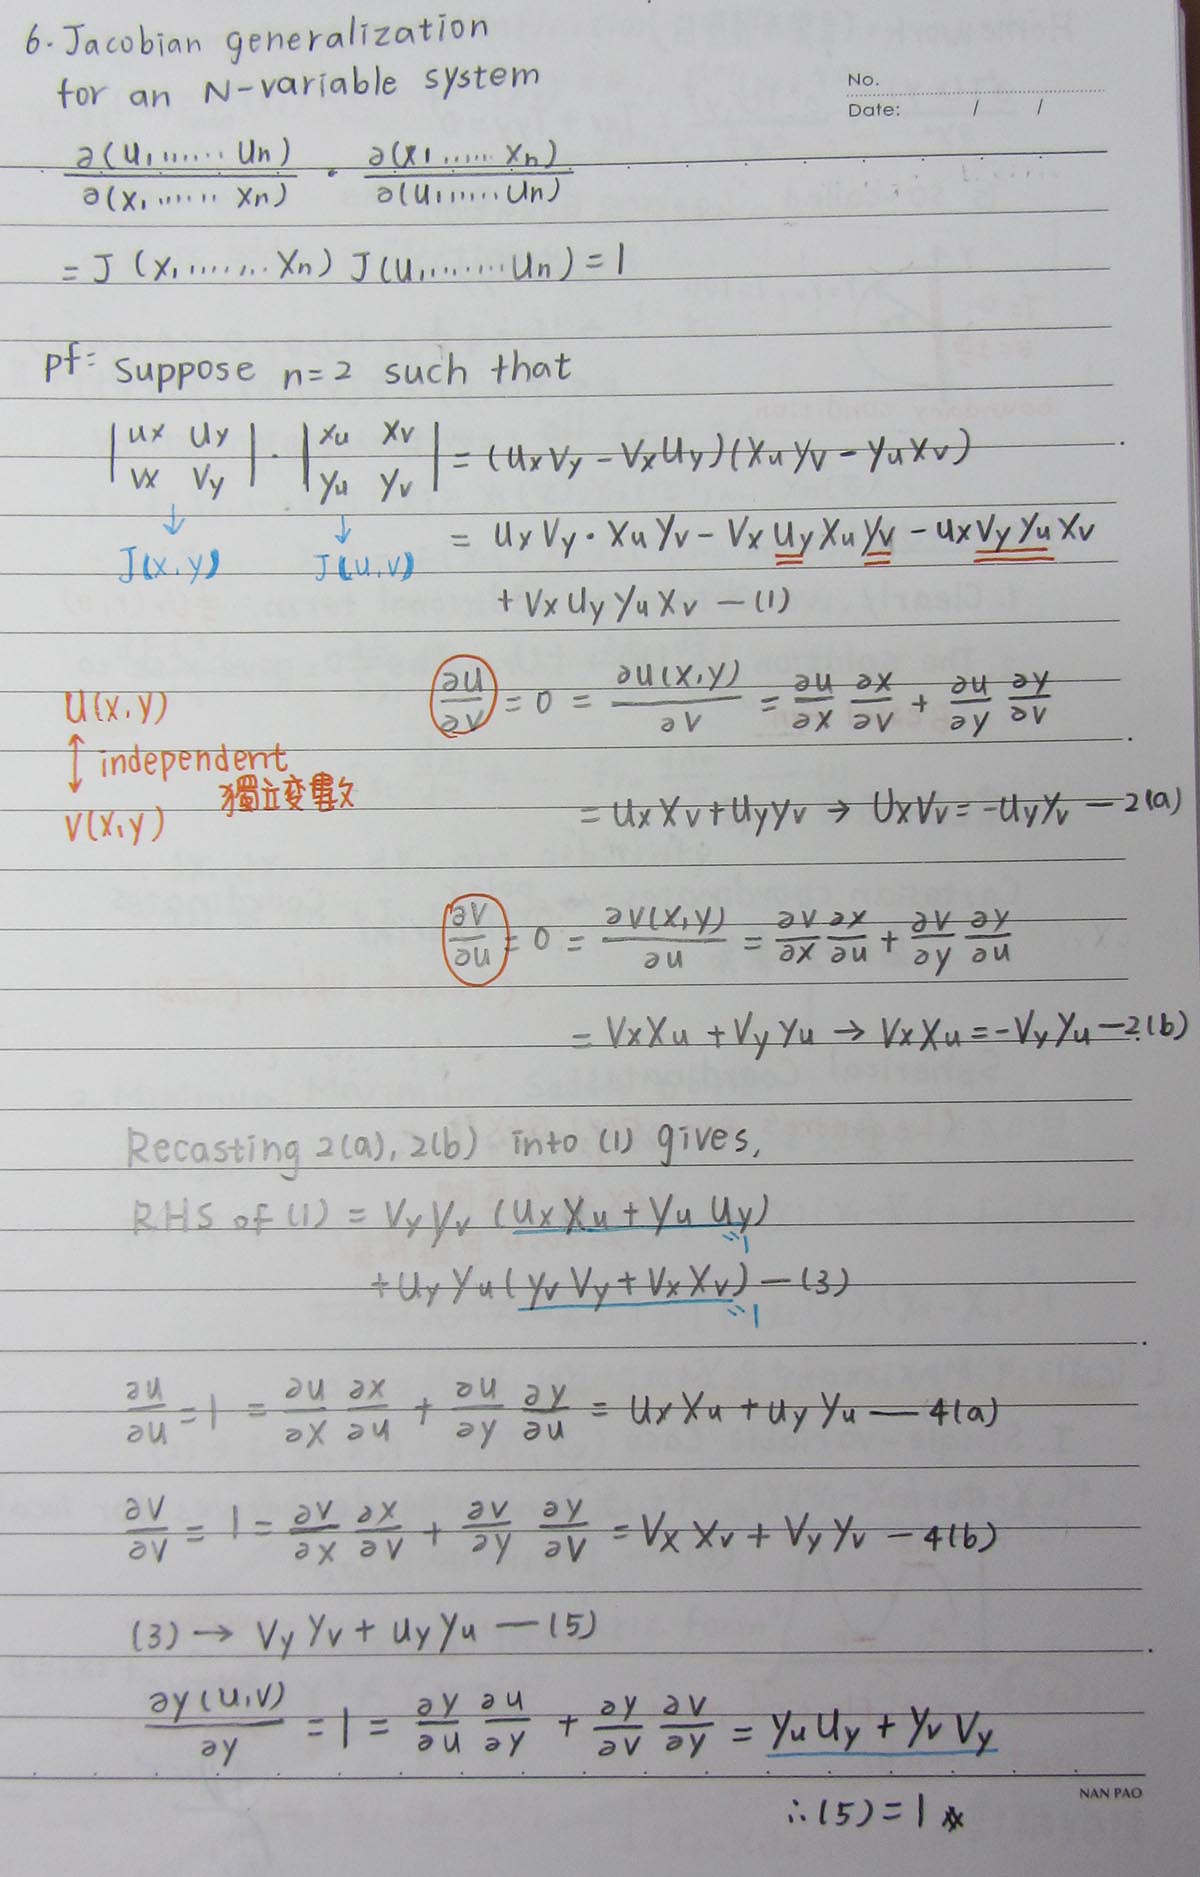 6. Jacobian generalization
for an N-variable system
No.
Date: / /
∂(u1,......un)/∂(x1......xn) · ∂(x1......xn)/∂(u1......un)
= J(x1,.......xn) J(u1........un) = 1
pf: Suppose n=2 such that
|ux uy; vx vy| · |xu xv; yu yv| = (uxvy - vxuy)(xuyv - yuxv)
↓ J(x,y) ↓ J(u,v)
= uxvy·xuyv - vxuyxuyv - uxvyyuxv
+ vxuyyuxv — (1)
∂u/∂v = 0 = ∂u(x,y)/∂v = ∂u/∂x ∂x/∂v + ∂u/∂y ∂y/∂v
u(x,y)
↕ independent
獨立変數
v(x,y)
= uxxv + uyyv → uxvv = -uyyv — 2(a)
∂v/∂u = 0 = ∂v(x,y)/∂u = ∂v/∂x ∂x/∂u + ∂v/∂y ∂y/∂u
= vxxu + vyyu → vxxu = -vyyu — 2(b)
Recasting 2(a), 2(b) into (1) gives,
RHS of (1) = vyyv (uxxu + yuuy)
"1
+ uyyu (yvvy + vxxv) — (3)
"1
∂u/∂u = 1 = ∂u/∂x ∂x/∂u + ∂u/∂y ∂y/∂u = uxxu + uyyu — 4(a)
∂v/∂v = 1 = ∂v/∂x ∂x/∂v + ∂v/∂y ∂y/∂v = vxxv + vyyv — 4(b)
(3) → vyyv + uyyu — (5)
∂y(u,v)/∂y = 1 = ∂y/∂u ∂u/∂y + ∂y/∂v ∂v/∂y = yuuy + yvvy
NAN PAO
∴(5) = 1 ※